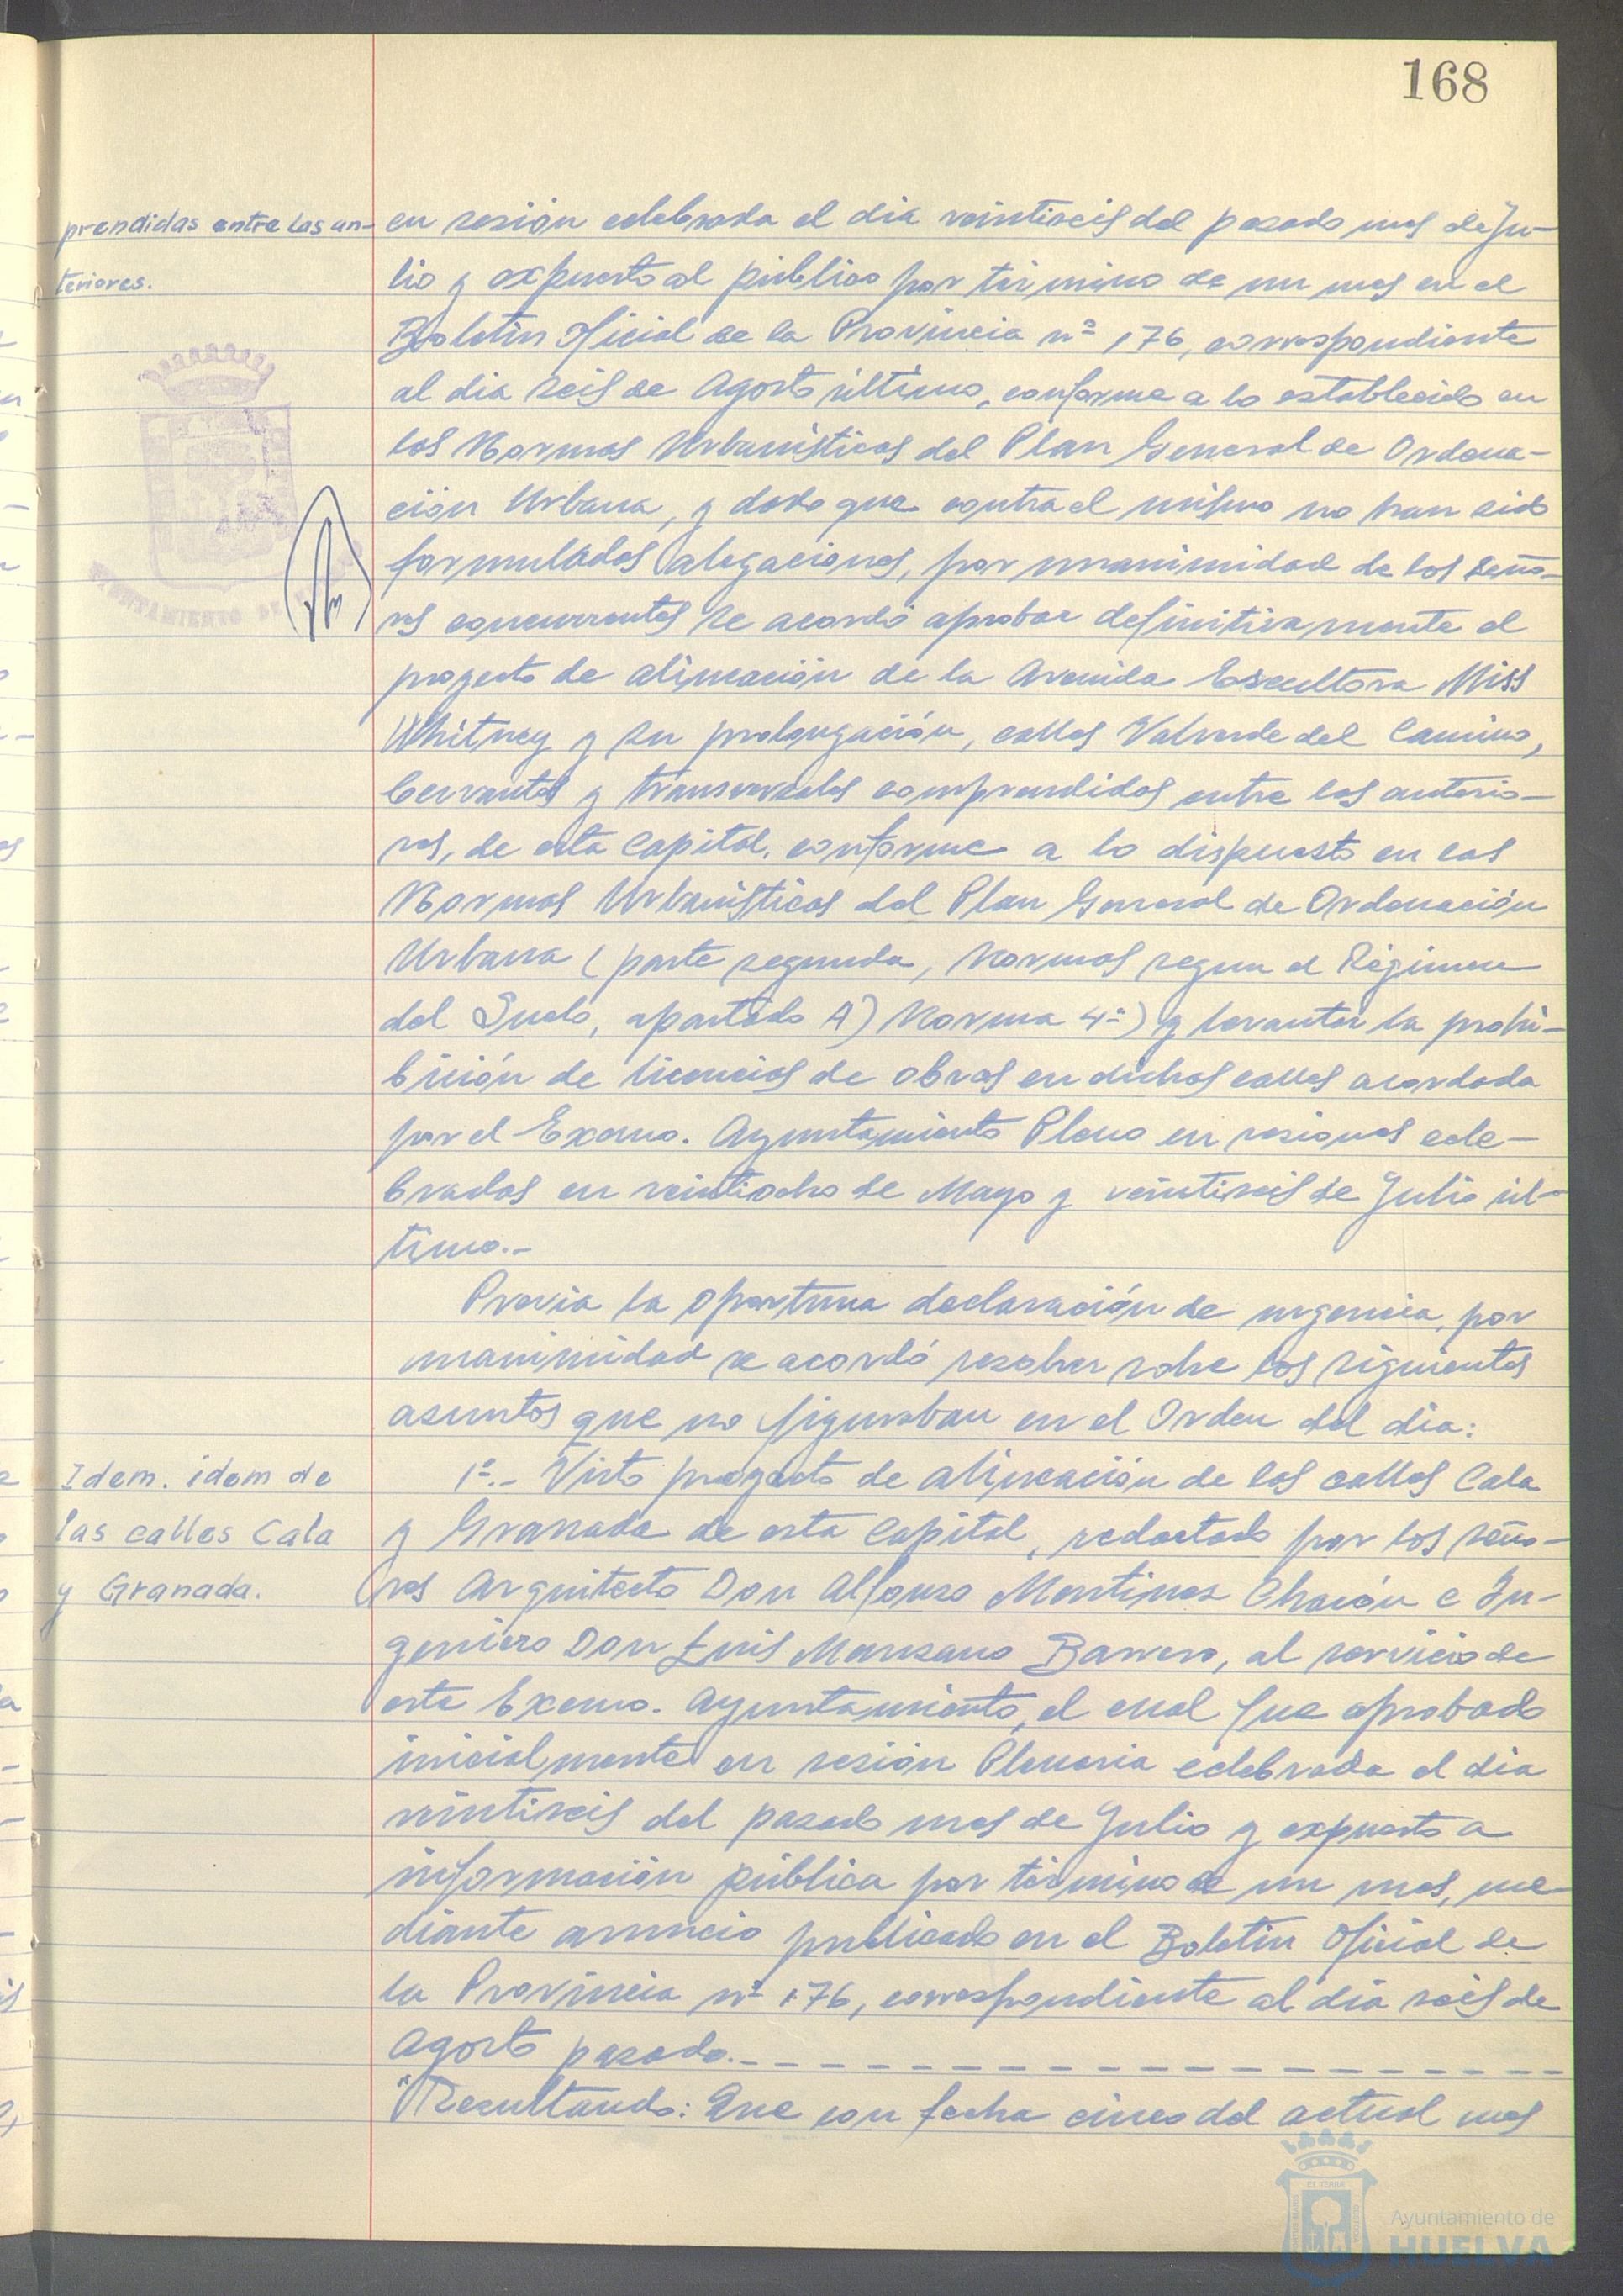 168
prendidas entre las an-
teriores.
en sesión celebrada el dia veintiseis del pasado mes de Ju-
lio y expuesto al público por término de un mes en el
Boletin Oficial de la Provincia nº 176, correspondiente
al dia seis de Agosto último, conforme a lo establecido en
las Normas Urbanísticas del Plan General de Ordena-
ción Urbana, y dado que contra el mismo no han sido
formuladas alegaciones, por unanimidad de los seño-
res concurrentes se acordó aprobar definitivamente el
proyecto de alineación de la Avenida Escultora Miss
Whitney y su prolongación, calles Valverde del Camino,
Cervantes y transversales comprendidas entre las anterio-
res, de esta Capital, conforme a lo dispuesto en las
Normas Urbanísticas del Plan General de Ordenación
Urbana (parte segunda, Normas segun el Régimen
del Suelo, apartado A) Norma 4ª) y levantar la prohi-
bición de licencias de obras en dichas calles acordada
por el Excmo. Ayuntamiento Pleno en sesiones cele-
bradas en veintiocho de Mayo y veintiseis de Julio úl-
timo.-
Previa la oportuna declaración de urgencia, por
unanimidad se acordó resolver sobre los siguientes
asuntos que no figuraban en el Orden del dia:
Idem. idem de
las calles Cala
y Granada.
1º.- Visto proyecto de alineación de las calles Cala
y Granada de esta Capital, redactado por los seño-
res Arquitecto Don Alfonso Martinez Chacón e In-
geniero Don Luis Manzano Barrero, al servicio de
este Excmo. Ayuntamiento, el cual fue aprobado
inicialmente en sesión Plenaria celebrada el dia
veintiseis del pasado mes de Julio y expuesto a
información pública por término de un mes, me
diante anuncio publicado en el Boletin Oficial de
la Provincia nº 176, correspondiente al dia seis de
Agosto pasado.- - - - - - - - - - - - - - - - - -
"Resultando: Que con fecha cinco del actual mes
AYUNTAMIENTO DE
Ayuntamiento de
HUELVA